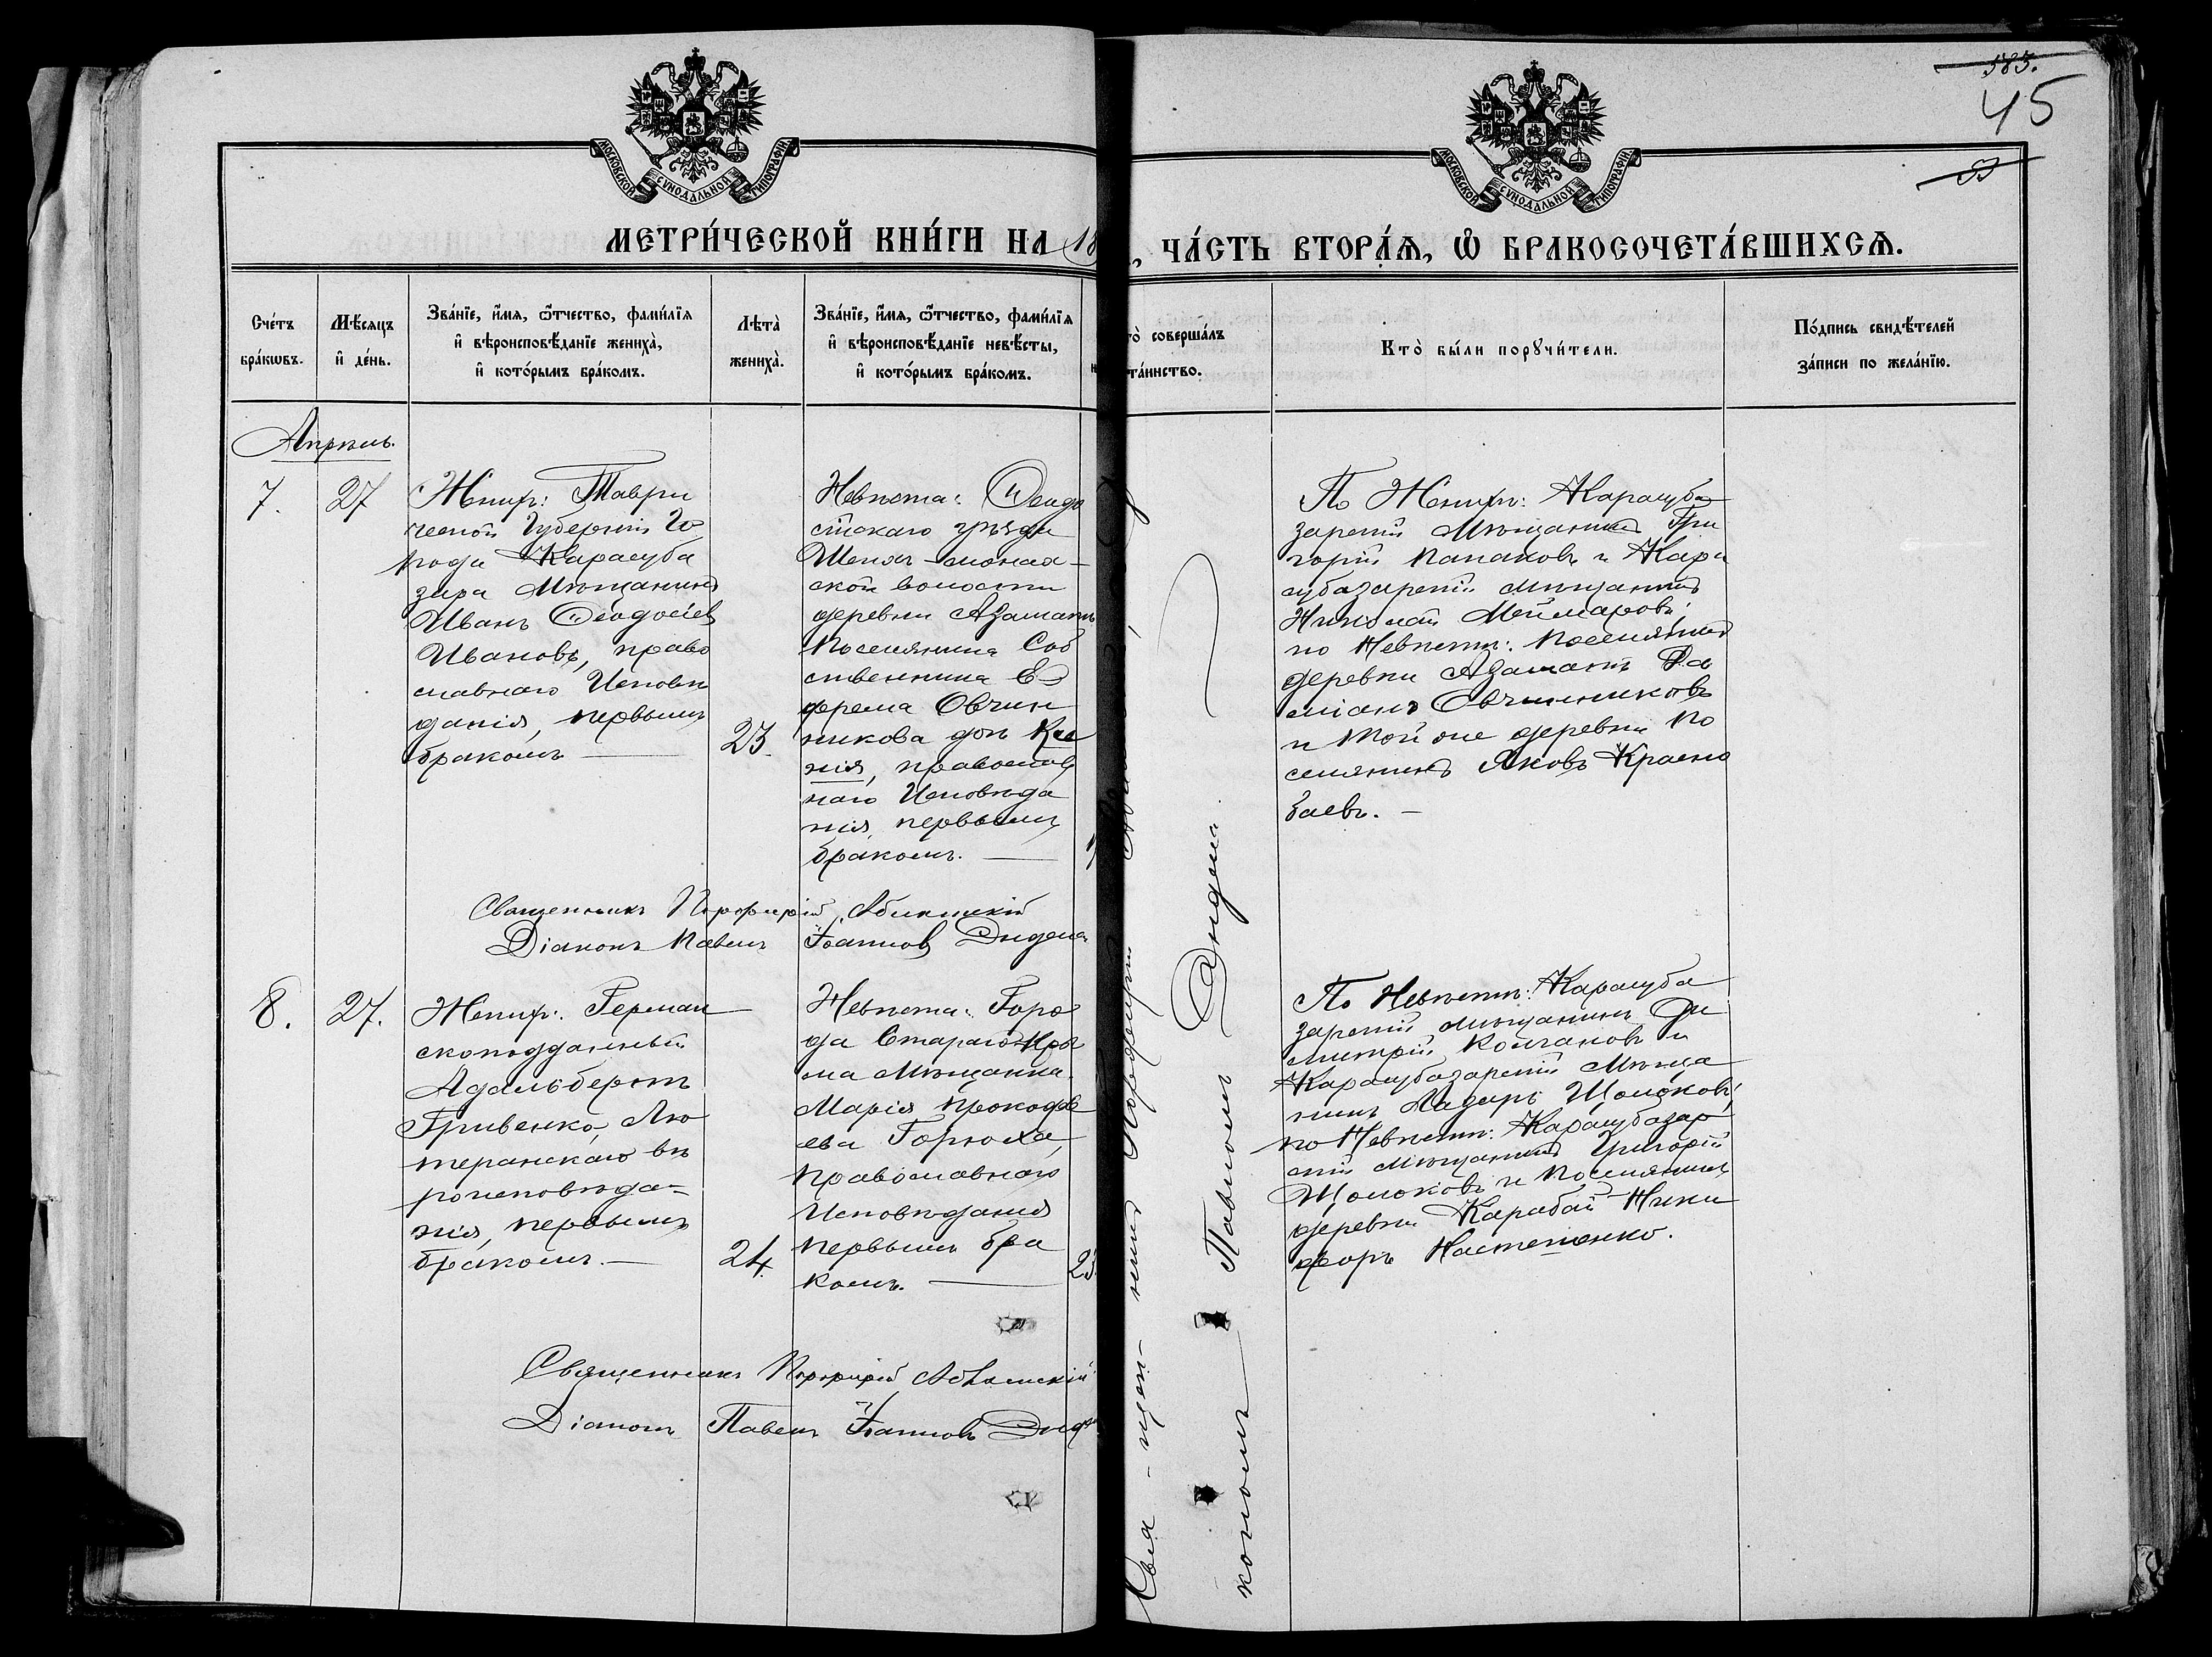 585.
45
53
МОСКОВСКОЙ СѴНОДАЛЬНОЙ ТИПОГРАФІИ
МОСКОВСКОЙ СѴНОДАЛЬНОЙ ТИПОГРАФІИ
МЕТРИ́ЧЕСКОЙ КНИ́ГИ НА 18
, ЧА́СТЬ ВТОРА́Ѧ, Ѡ҆ БРАКОСОЧЕТА́ВШИХСѦ.
Сче́тъ
бра́кѡвъ.
Мѣ́сяцъ
и҆ де́нь.
Зва́нїе, и҆́мя, ѻ҆́тчество, фами́лїя
и҆ вѣроисповѣ́данїе жениха̀,
и҆ кото́рымъ бра́комъ.
Лѣта̀
жениха̀.
Зва́нїе, и҆́мя, ѻ҆́тчество, фами́лїя
и҆ вѣроисповѣ́данїе невѣ́сты,
и҆ кото́рымъ бра́комъ.
то̀ соверша́лъ
та́инство.
Кто̀ бы́ли порꙋчи́тели.
По́дпись свидѣ́телей
за́писи по жела́нїю.
Апрѣль.
7.
27
Женихъ: Таври
ческой Губерніи Го
рода Карасуба
зара Мѣщанинъ
Иванъ Ѳеодосіев
Ивановъ, право
славнаго Исповѣ
данія, первымъ
бракомъ
23.
Невѣста: Ѳеодо
сійскаго уѣзда
Шейх-монах-
ской волости
деревни Азаматъ
Поселянина Соб
ственника Е
фрема Овчин
никова дочь Ксе
нія, православ
наго Исповѣда
нія, первымъ
бракомъ.
По Женихѣ: Карасуба
зарскій Мѣщанинъ Гри
горій Папаковъ и Кара
субазарскій мѣщанинъ
Николай Меймаровъ;
по Невѣстѣ: Поселянинъ
деревни Азаматъ Да
міанъ Овчинниковъ
и той же деревни По
селянинъ Яковъ Красно
баевъ.
Священникъ Порфирій
Діаконъ Павелъ Іоанновъ Дидена
8.
27.
Женихъ: Герман
скоподданный
Адальбертъ
Гривенко, Лю
теранскаго вѣ
роисповѣда=
нія, первымъ
бракомъ.
24.
Невѣста: Горо
да Стараго Кры
ма Мѣщанка
Марія Прокофі
ева Горюха,
Православнаго
Исповѣданія
первымъ бра
комъ.
23.
По Невѣстѣ: Карасуба
зарскій мѣщанинъ Ди
митрій Колчаковъ и
Карасубазарскій Мѣща
нинъ Лазарь Щолоковъ;
по Невѣстѣ: Карасубазар
скій мѣщанинъ Григорій
Щолоковъ и Поселянинъ
деревни Карабай Ники
форъ Настетенко.
Священникъ Порфирій
Діаконъ Павелъ Іоанновъ
Свя-щен-никъ Порфирій
кономъ Павломъ Дидена